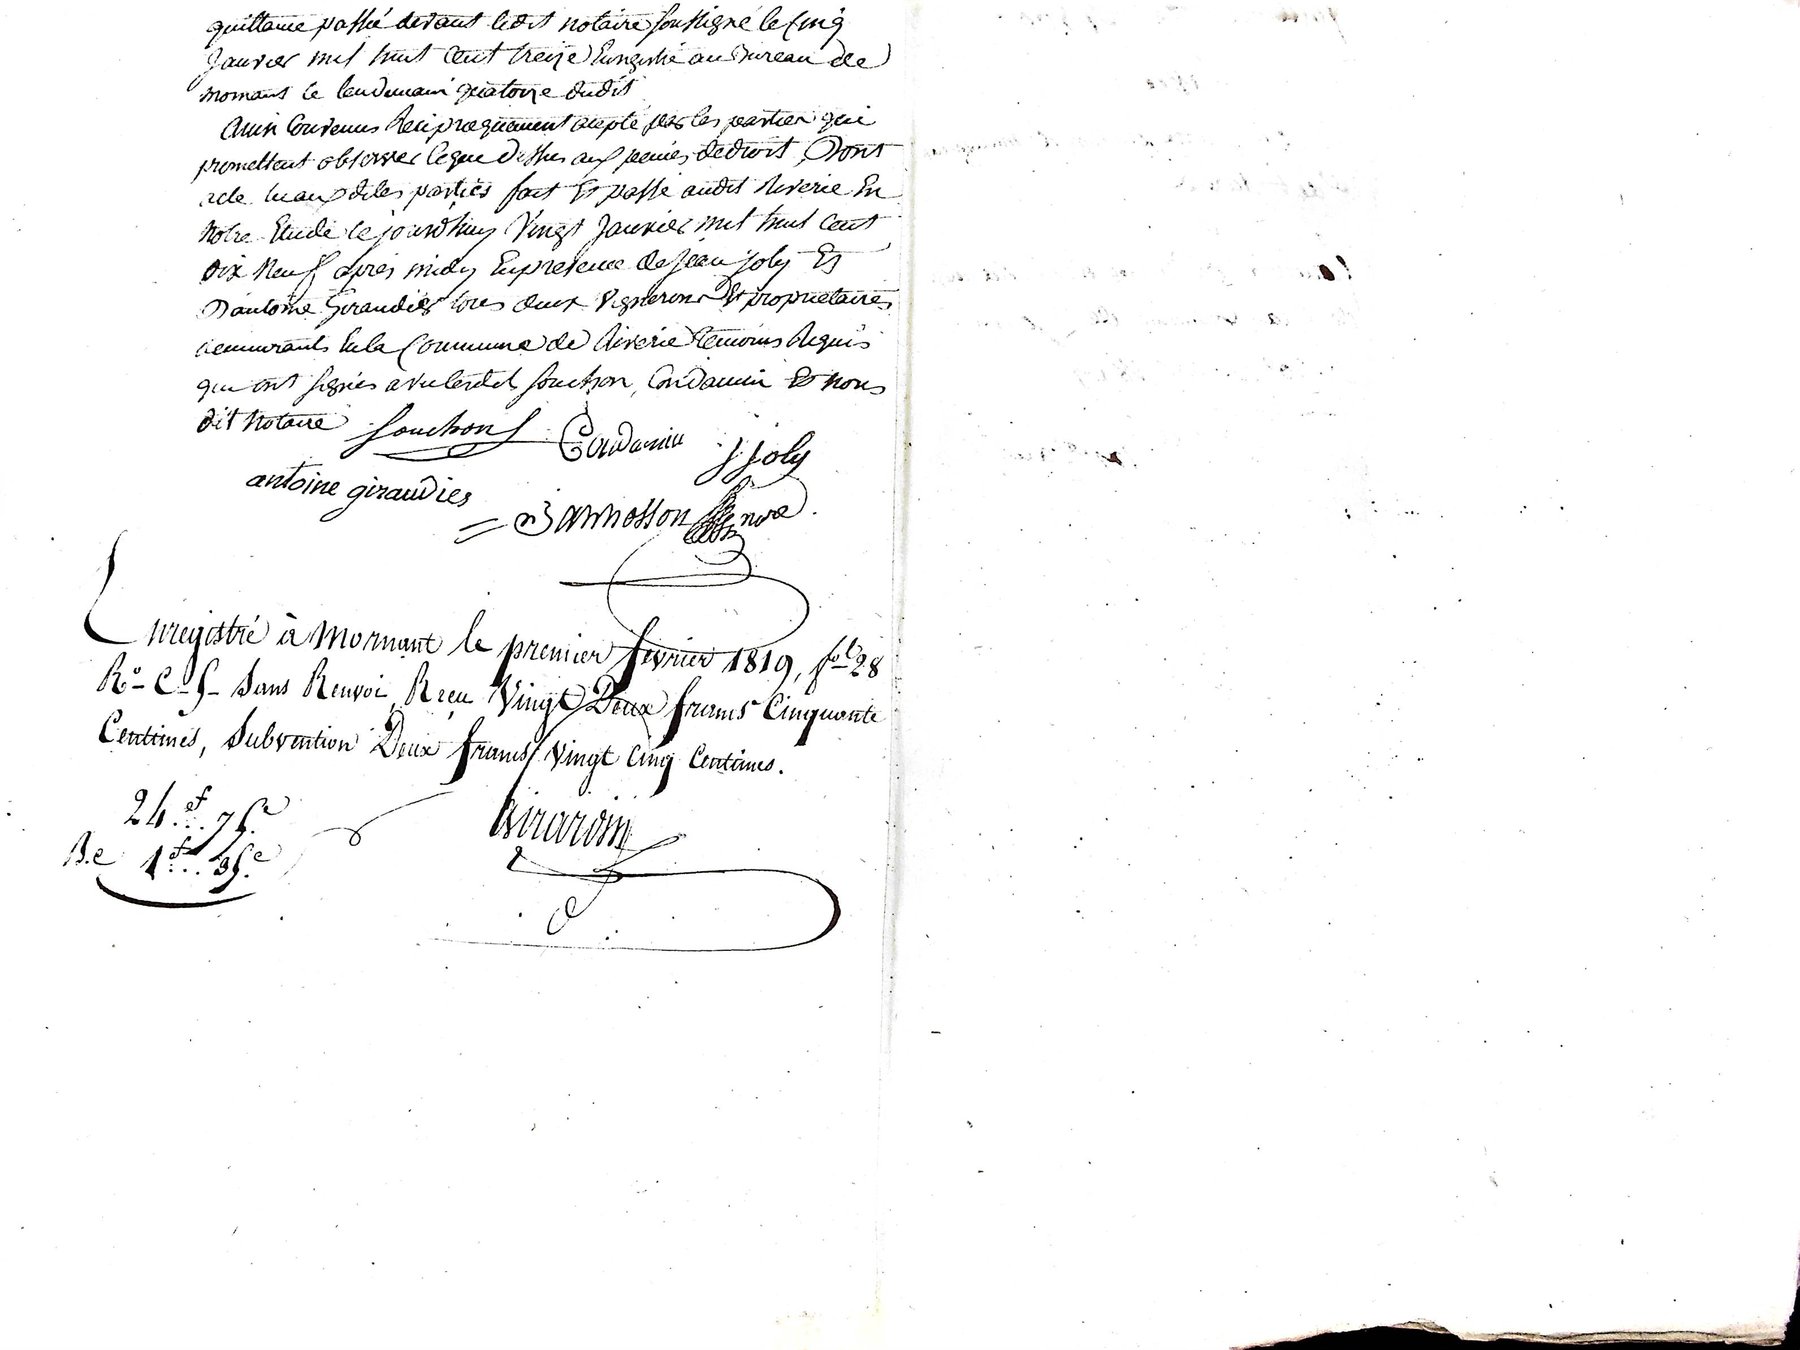 quittance passé devant ledit notaire soussigné le Cinq
Janvier mil huit Cent treize Enregistré au Bureau de
mornant le lendemain quatorze dudit
Ainsi Convenus Reciproquement accepté par les parties qui
promettent observer Ceque Dessus aux peines de droit, Dont
acte lu aux dites parties fait Et passé audit Riverie En
Notre Etude Ce jourd'huy Vingt Janvier mil huit Cent
Dix Neuf après midy En presence de Jean Joly Et
D'antoine Giraudier tous deux Vignerons Et proprietaires
demeurants En la Commune de Riverie temoins Requis
qui ont signés avec lesdits Souchon, Condamin Et nous
dit Notaire Souchon Condamin J Joly
antoine giraudier
= Jannosson nore.
Enregistré à Mornant le premier février 1819, fol 28
Ro C. 5. Sans Renvoi, Reçu Vingt Deux francs Cinquante
Centimes, Subvention Deux francs Vingt Cinq Centimes.
24.f.. 75.c
1.f... 35.c
Girardin